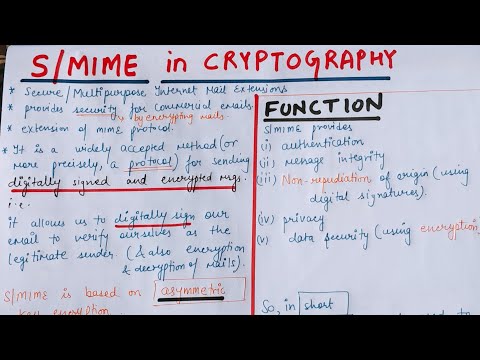 S/MIME in CRYPTOGRAPHY
* Secure/Multipurpose Internet Mail Extensions
* provides security for commercial emails.
↳ by encrypting mails
* extension of MIME protocol.
* It is a widely accepted method (or
more precisely, a protocol) for sending
digitally signed and encrypted msgs.
i.e.
it allows us to digitally sign our
email to verify ourselves as the
legitimate sender (& also encryption
& decryption of mails).
S/MIME is based on asymmetric
key encryption
FUNCTION
S/MIME provides
(i) authentication
(ii) message integrity
(iii) Non-repudiation of origin (using
digital signatures).
(iv) privacy
(v) data security (using encryption)
So, in short